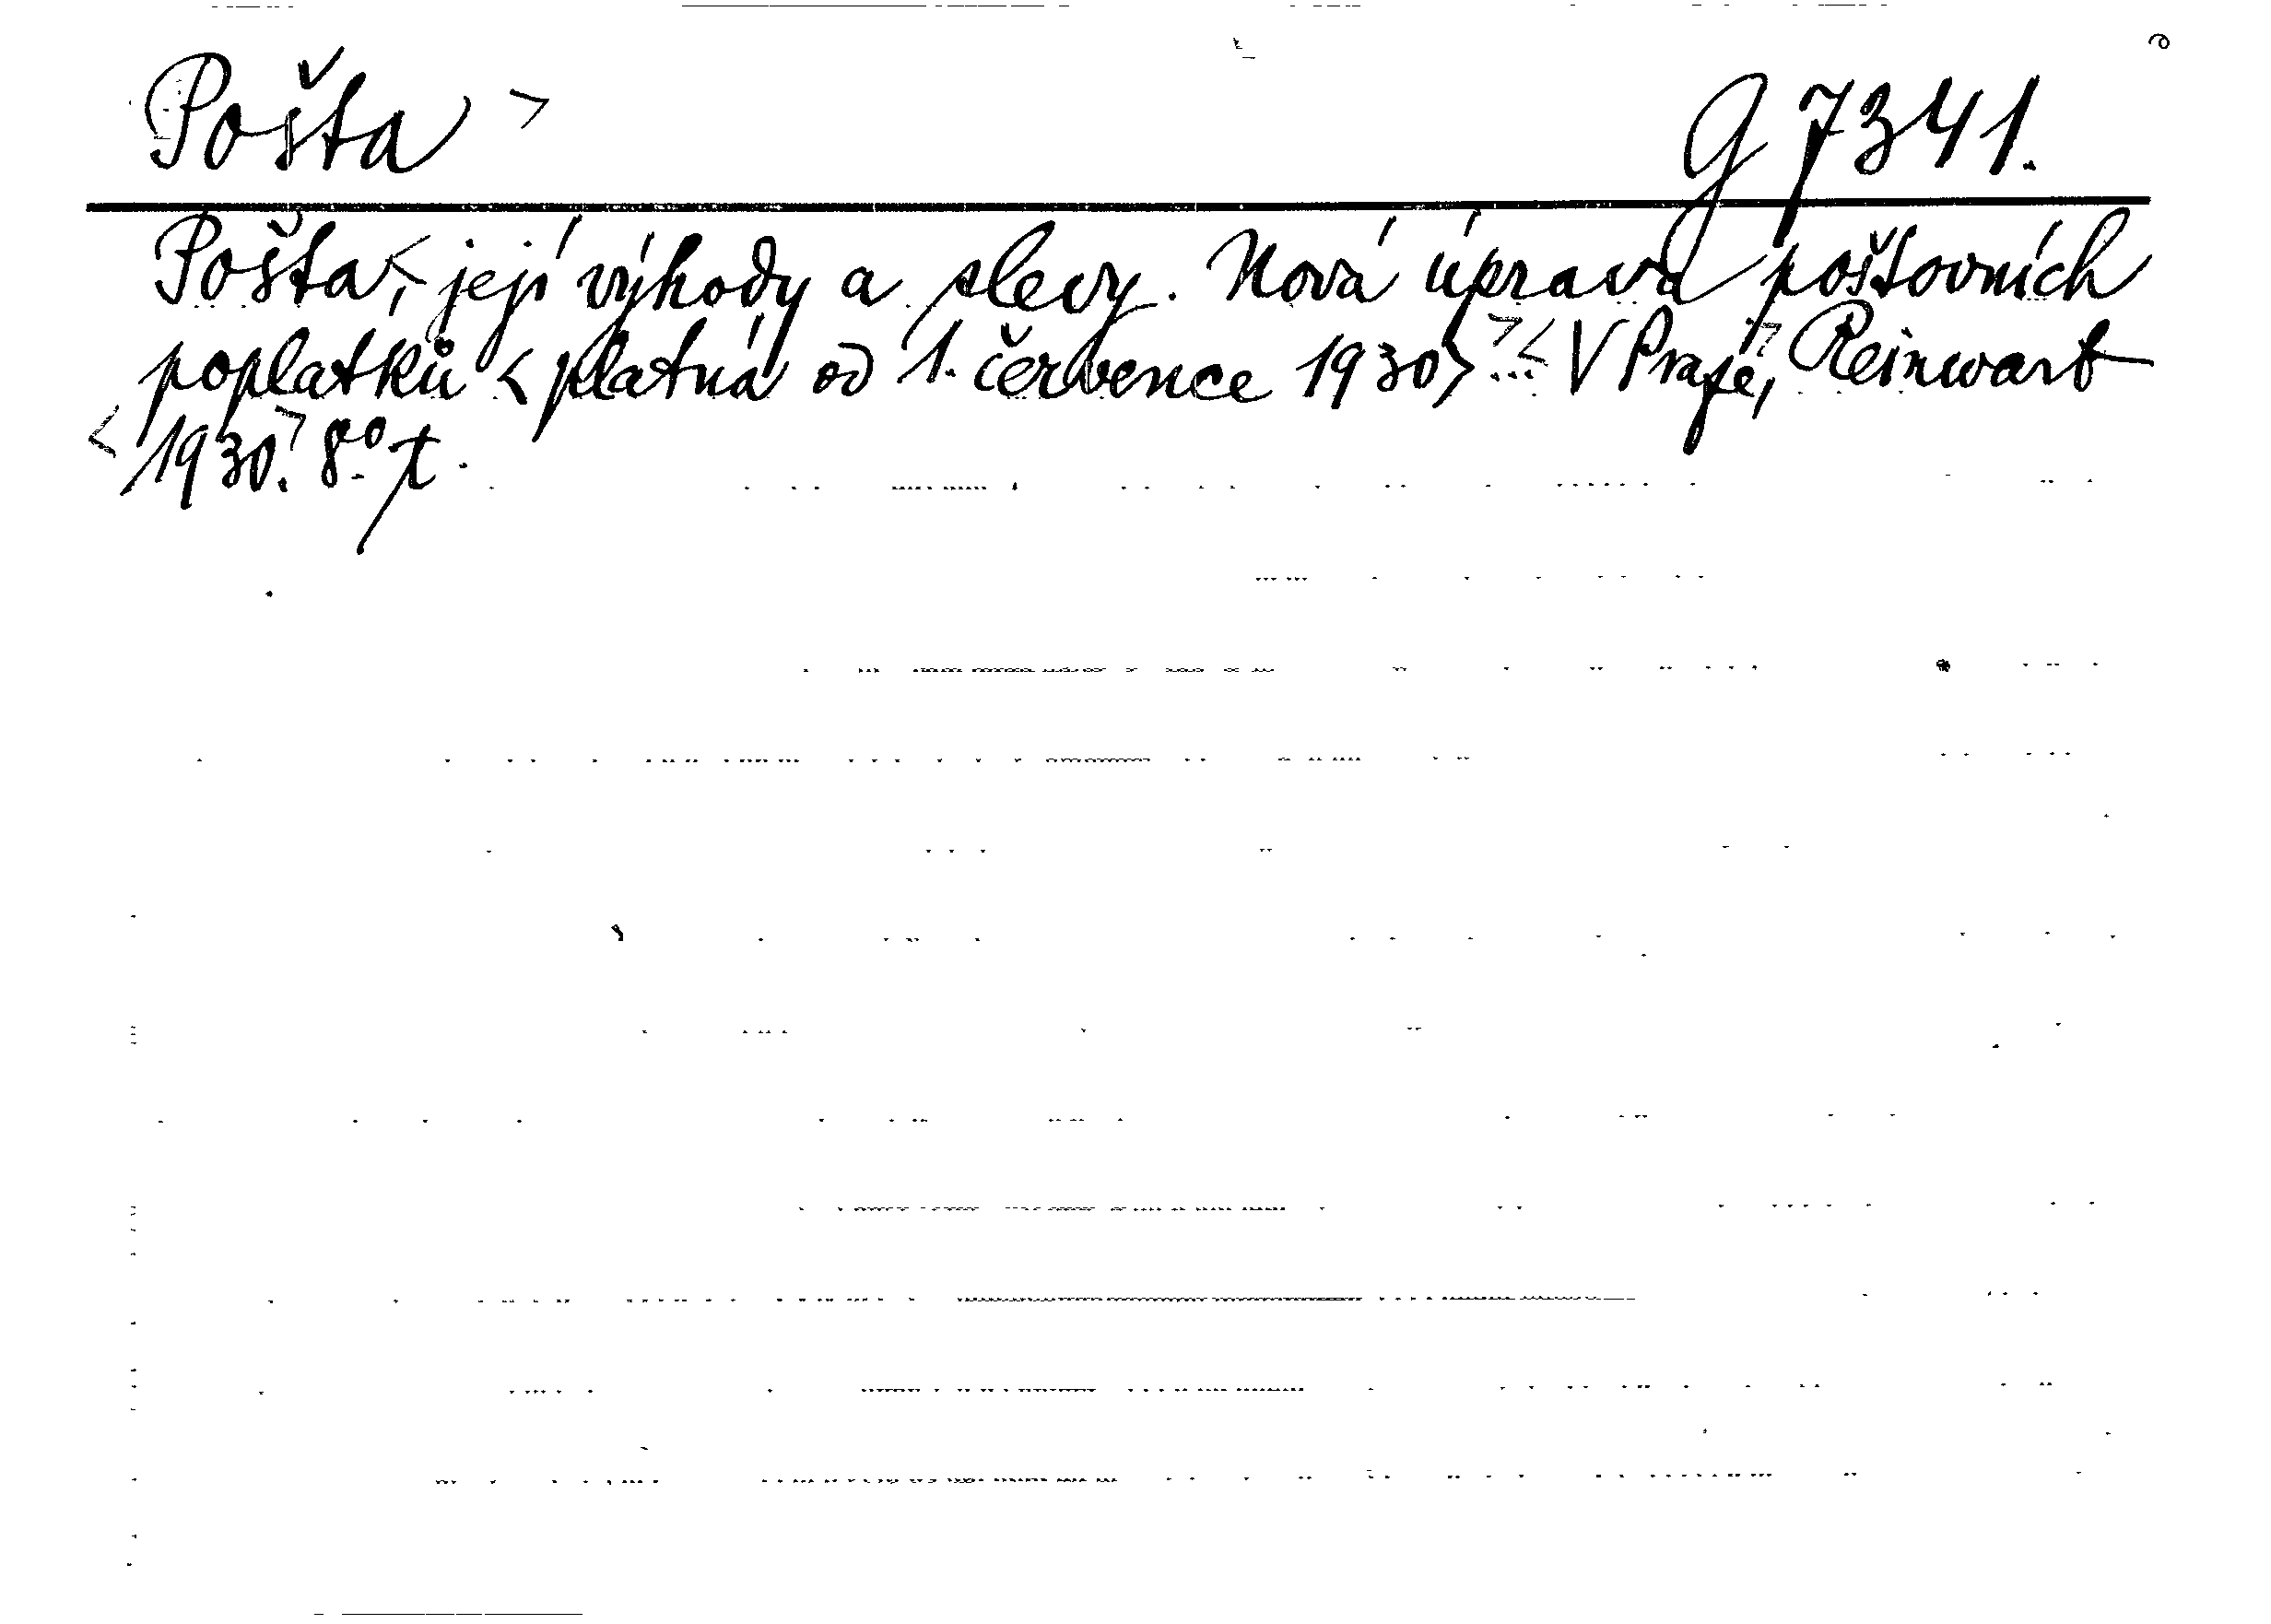 Pošta > G 7341.
Pošta, < její výhody a slevy. Nová úprava poštovních
poplatků < platná od 1. července 1930 > ... > < V Praze, > Reinwart
< 1930. > 8° t.